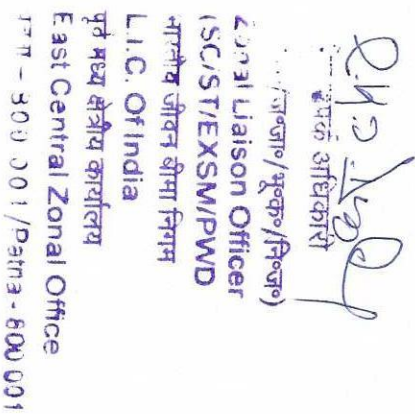 संपर्क अधिकारी
अ०ज०जा०/भूक०/नि०ज०)
Zonal Liaison Officer
(SC/ST/EXSM/PWD
भारतीय जीवन बीमा निगम
L.I.C. Of India
पूर्व मध्य क्षेत्रीय कार्यालय
East Central Zonal Office
- 800 001/Patna - 800 001